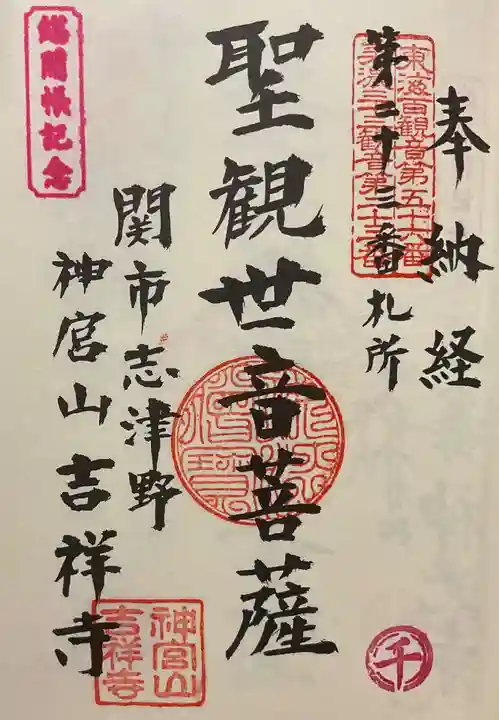 奉納経
第二十三番札所
東海百観音第五十六番
美濃三三観音第二十三番
聖観世音菩薩
関市志津野
神宮山吉祥寺
総開帳記念
神宮山
吉祥寺
千